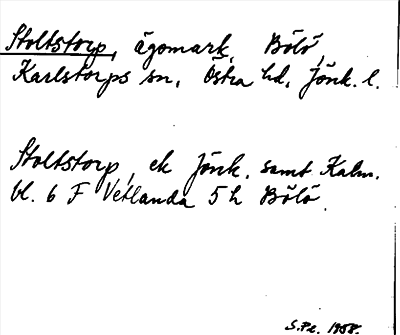 Stoltstorp, ägomark, Bölö,
Karlstorps sn, Östra hd, Jönk. l.
Stoltstorp, ek Jönk. samt Kalm.
bl. 6 F Vetlanda 5 h Bölö.
S.Pe. 1958.